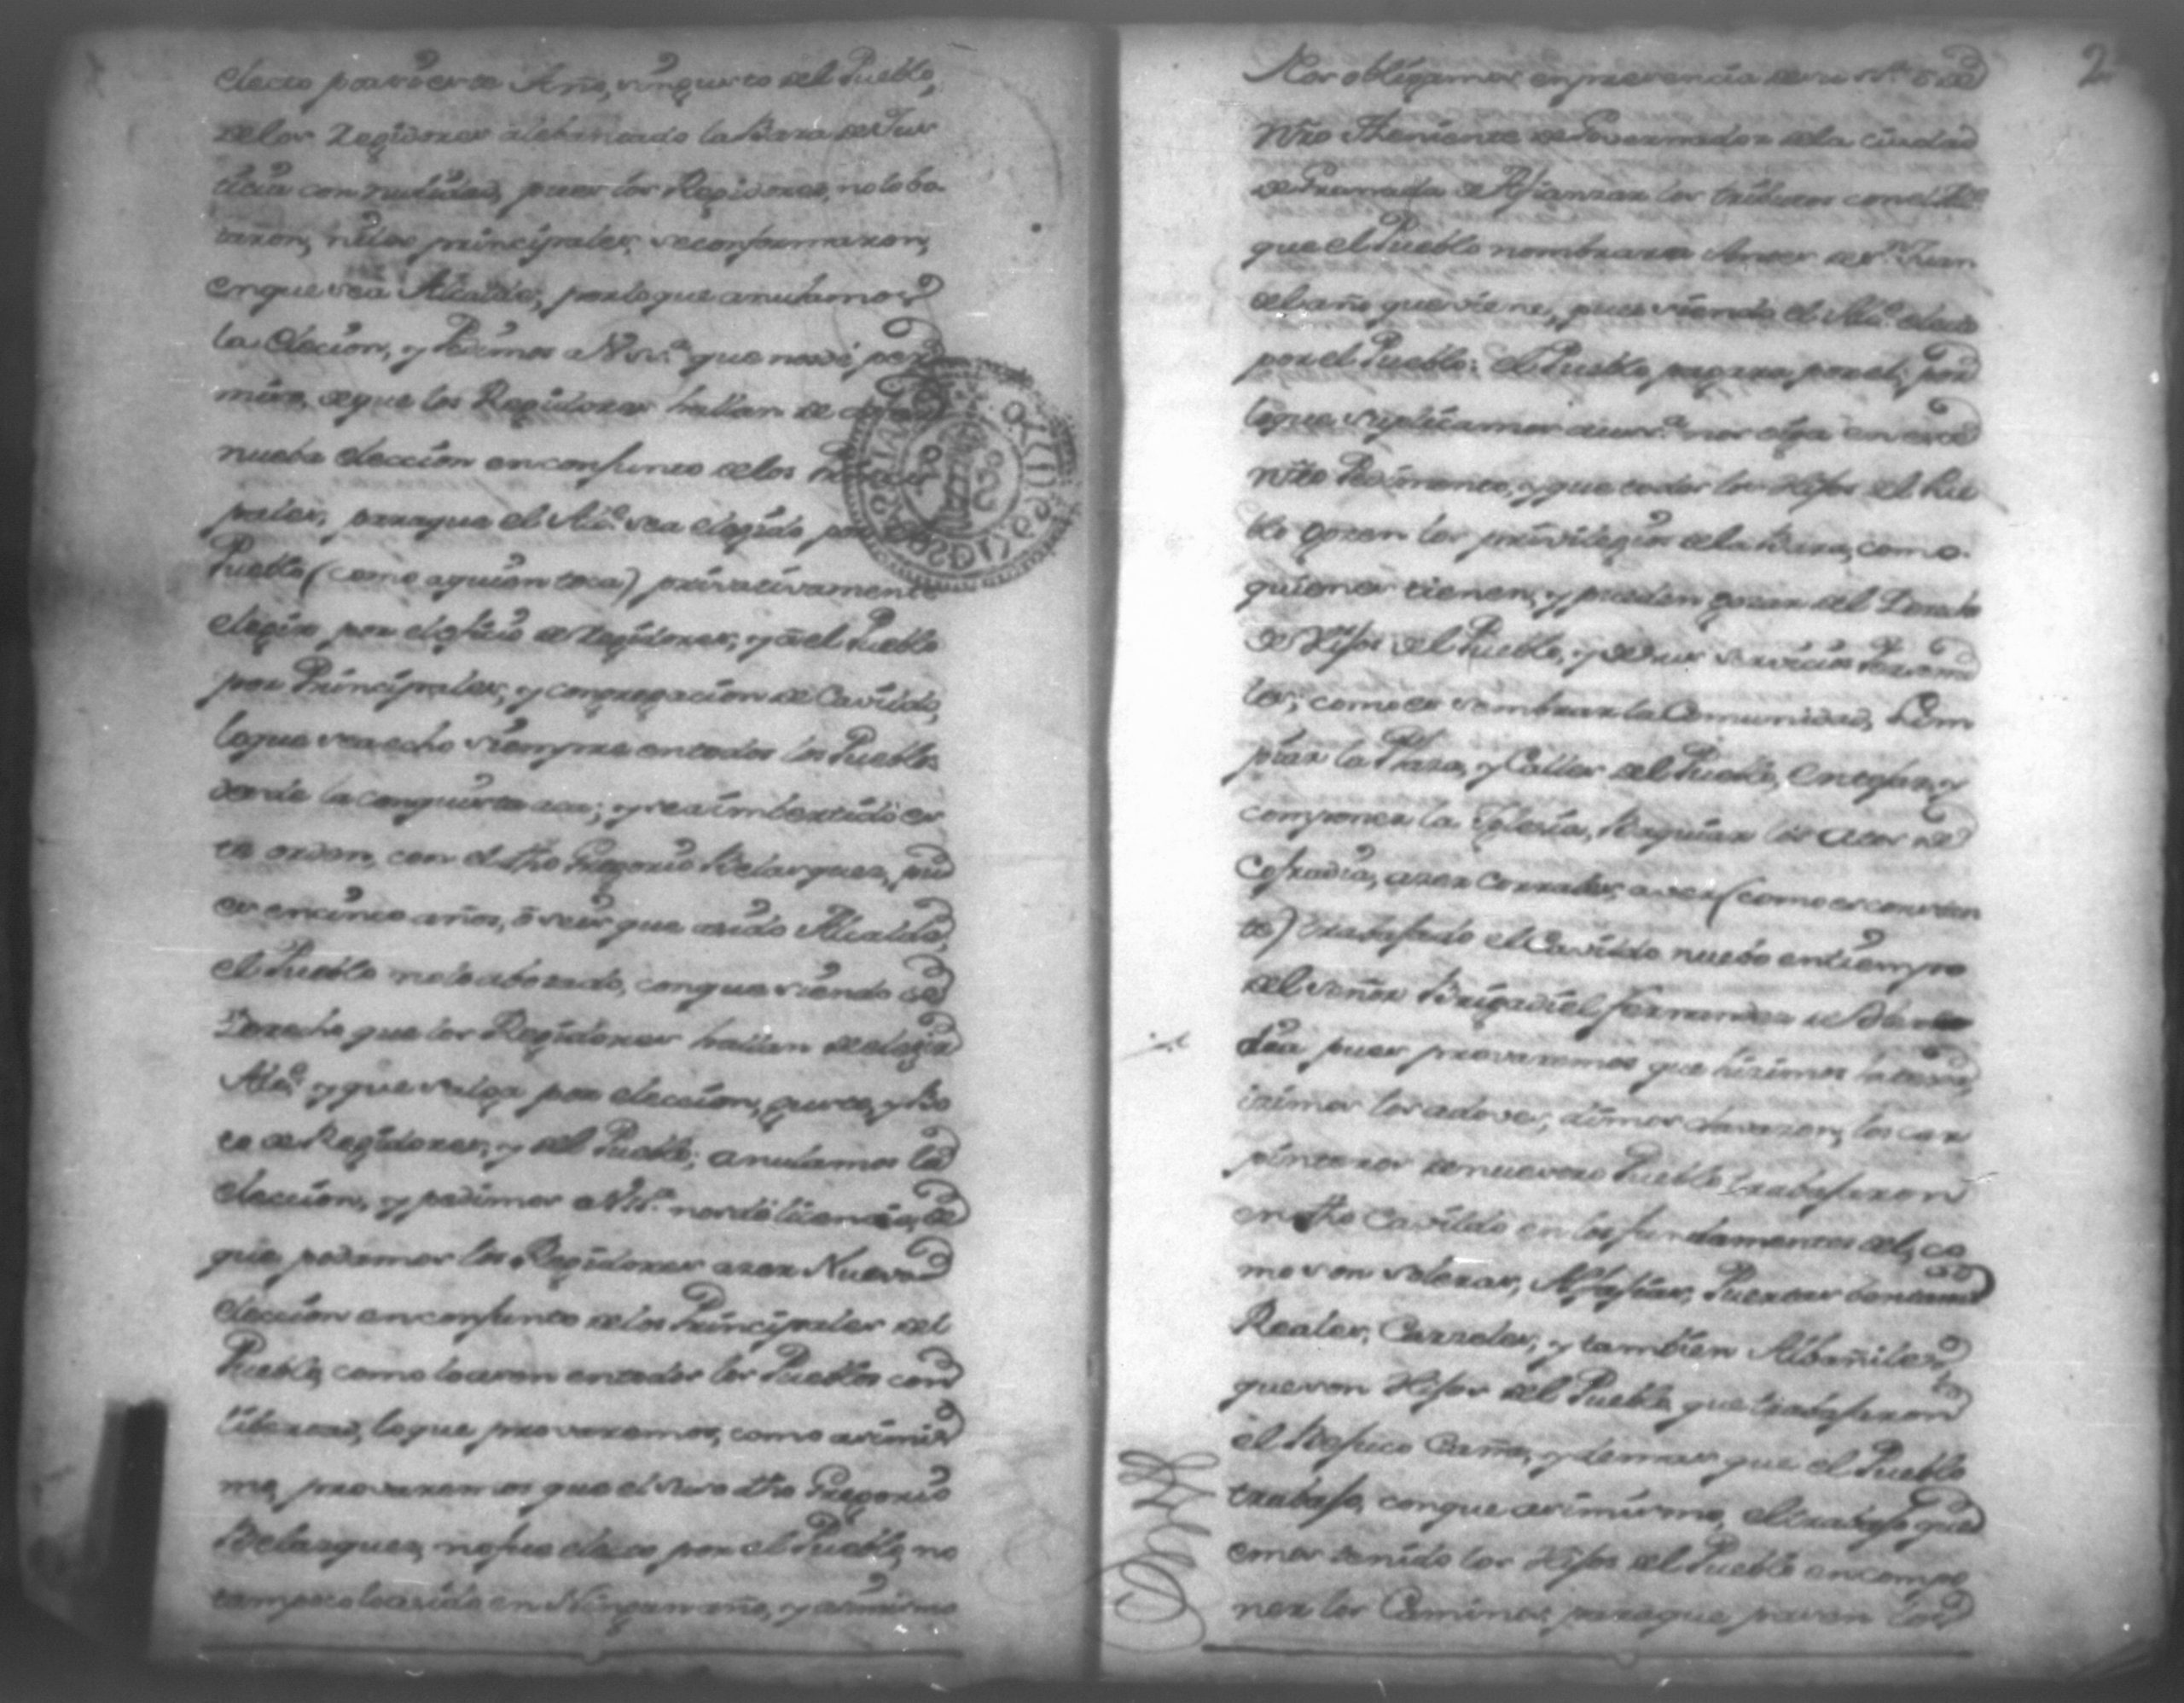 electo para este Año, singusto del Pueblo,
delos Regidores alebantado la Bara de Jus
ticia con nulidad, pues los Regidores, nolobo
taron, nilos principales, seconformaron,
enque sea Alcalde, porloque anulamos
la elecion, y Pedimos a Vsrª. que nosdé per
miso, deque los Regidores hallan de
nueba eleccion enconjunto delos Princi
pales, paraque el Alcᵉ. sea elegido por el
Pueblo (como aquien toca) privativamente
elegir por eloficio de Regidores, y del Pueblo
por Principales, y congregacion de Cavildo,
loque seaecho siempre entodos los Pueblos
desde la conquista aca; y sea imbertido es
te orden, con el dho Gregorio Belasques, pu
es encinco años, ó seis que asido Alcalde,
el Pueblo noloabotado, conque siendo de
Derecho que los Regidores hallan de elegir
Alcᵉ. y que salga por eleccion, gusto, y bo
to de Regidores, y del Pueblo; anulamos la
eleccion, y pedimos a Vsª. nosdé licencia, de
que podamos los Regidores aser Nueva
eleccion enconjunto delos Principales del
Pueblo, como loasen entodos los Pueblos con
libertad, loque provaremos, como asimis
mo, provaremos que el suso dho Gregorio
Belasques, nofue electo por el Pueblo, no
tampoco loasido en Ningun año, y asimismo
2
Nos obligamos enpresencia de
Nro Theniente de Governador dela ciudad
de Granada de Afianzar los tributos con el Alcᵉ.
que el Pueblo nombrara Antes de Sⁿ. Juan
del año que viene, pues siendo el Alcᵉ. electo
por el Pueblo: el Pueblo, pagara, por el; por
loque suplicamos a Vsrª. nos oiga en este
nro Pedimento, y que todos los Hijos del Pue
blo gozen los privilegios dela Bara, como
quienes tienen, y pueden gozar del Derecho
de Hijos del Pueblo, y de sus servicios
les; como es sembrar la Comunidad, Lim
piar la Plaza, y Calles del Pueblo, Entejar, y
componer la Iglesia, Baquiar los Atos de
Cofradia, aser Corrales, aver (como es constan
te) trabajado el Cavildo nuebo entiempo
del señor Brigadiel Fernandes de
dia pues provaremos que hisimos la teja,
isimos los adoves, dimos clavazon, los car
pinteros denuestro Pueblo, trabajaron
en dho Cavildo en los fundamentos del, co
mo son soleras, Alfajias, Puertas bentanas
Reales, Carseles, y tambien Albañiles,
queson Hijos del Pueblo que trabajaron
el Caña, y demas que el Pueblo
trabajo, conque asimismo, el trabajo que
emos tenido los Hijos del Pueblo encompo
ner los Caminos, paraque pasen los